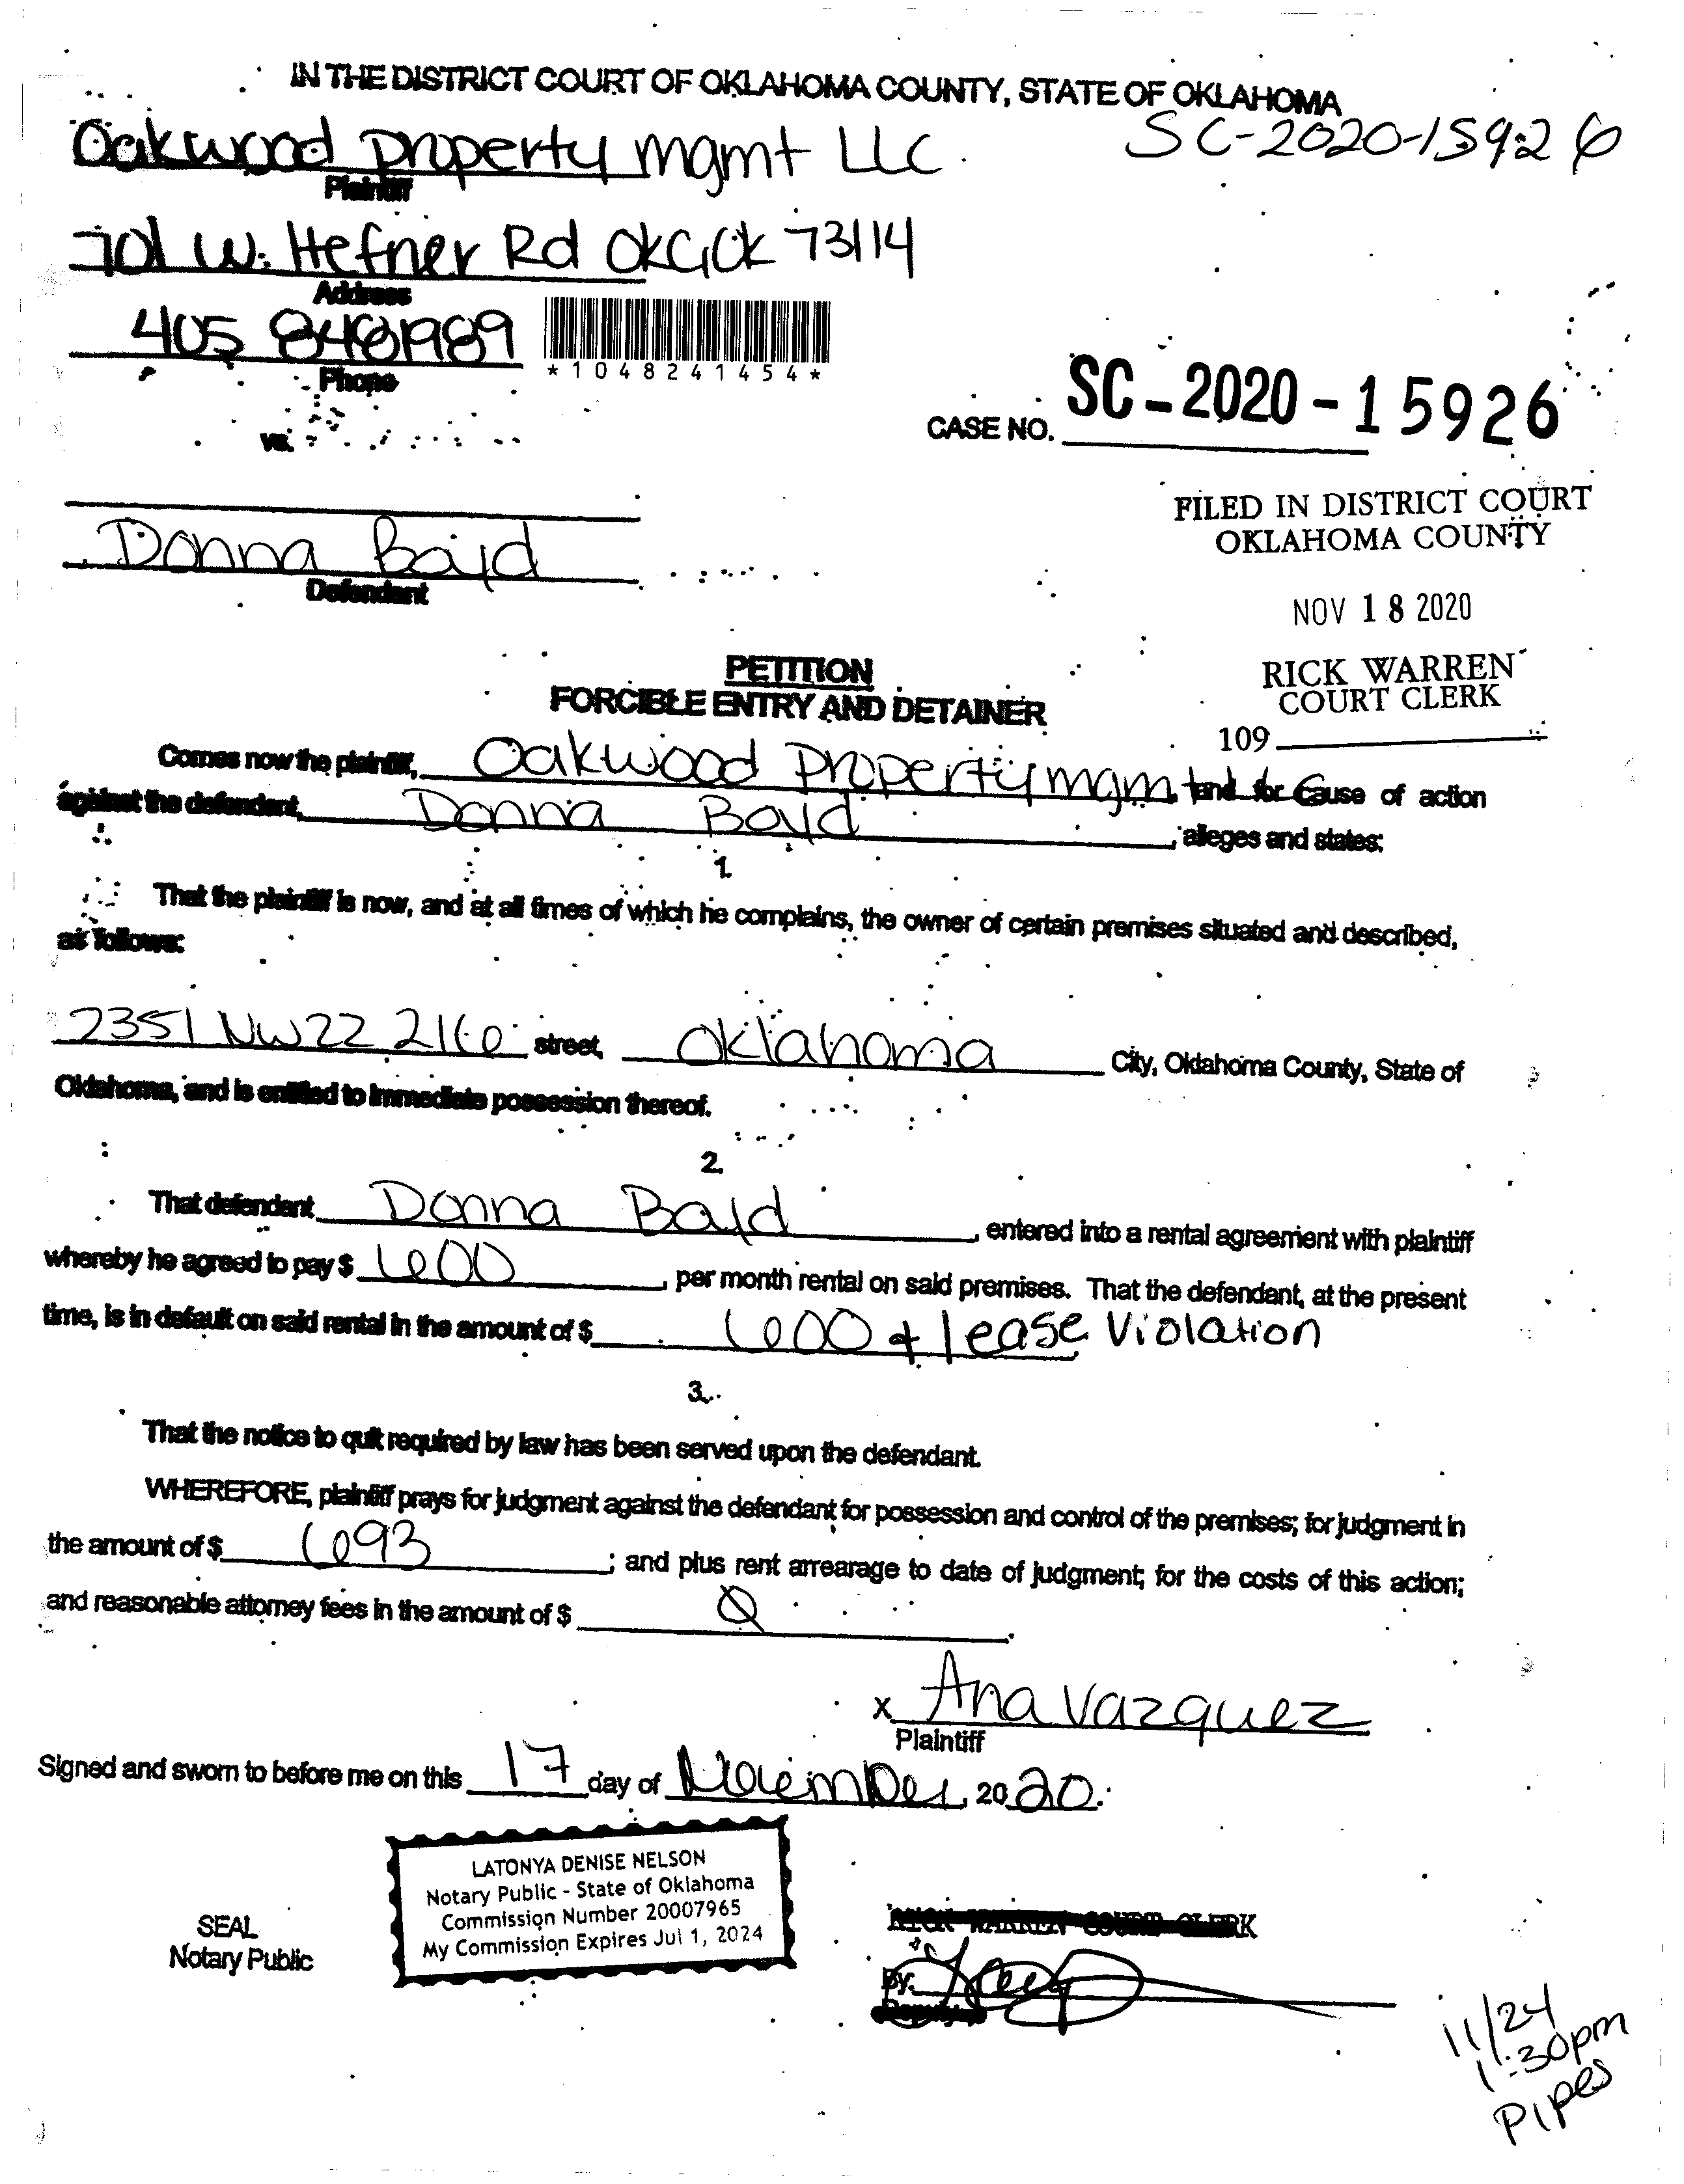 IN THE DISTRICT COURT OF OKLAHOMA COUNTY, STATE OF OKLAHOMA
Oakwood property mgmt LLC
SC-2020-15926
Plaintiff
701 W. Hefner Rd OKC, OK 73114
Address
405 8481989
Phone
*1048241454*
vs.
CASE NO. SC-2020-15926
Donna Boyd
Defendant
FILED IN DISTRICT COURT
OKLAHOMA COUNTY
NOV 18 2020
RICK WARREN
COURT CLERK
109
PETITION
FORCIBLE ENTRY AND DETAINER
Comes now the plaintiff, Oakwood Property mgmt, and for cause of action
against the defendant, Donna Boyd, alleges and states:
1.
That the plaintiff is now, and at all times of which he complains, the owner of certain premises situated and described,
as follows:
2351 NW 22 216 street, Oklahoma City, Oklahoma County, State of
Oklahoma, and is entitled to immediate possession thereof.
2.
That defendant Donna Boyd, entered into a rental agreement with plaintiff
whereby he agreed to pay $ 600, per month rental on said premises. That the defendant, at the present
time, is in default on said rental in the amount of $ 600 + lease violation
3.
That the notice to quit required by law has been served upon the defendant.
WHEREFORE, plaintiff prays for judgment against the defendant for possession and control of the premises; for judgment in
the amount of $ 693; and plus rent arrearage to date of judgment; for the costs of this action;
and reasonable attorney fees in the amount of $ 0.
x Ana Vazquez
Plaintiff
Signed and sworn to before me on this 17 day of November, 2020.
LATONYA DENISE NELSON
Notary Public - State of Oklahoma
Commission Number 20007965
My Commission Expires Jul 1, 2024
SEAL
Notary Public
RICK WARREN COURT CLERK
By:
Deputy
11/24
1:30pm
Pipes